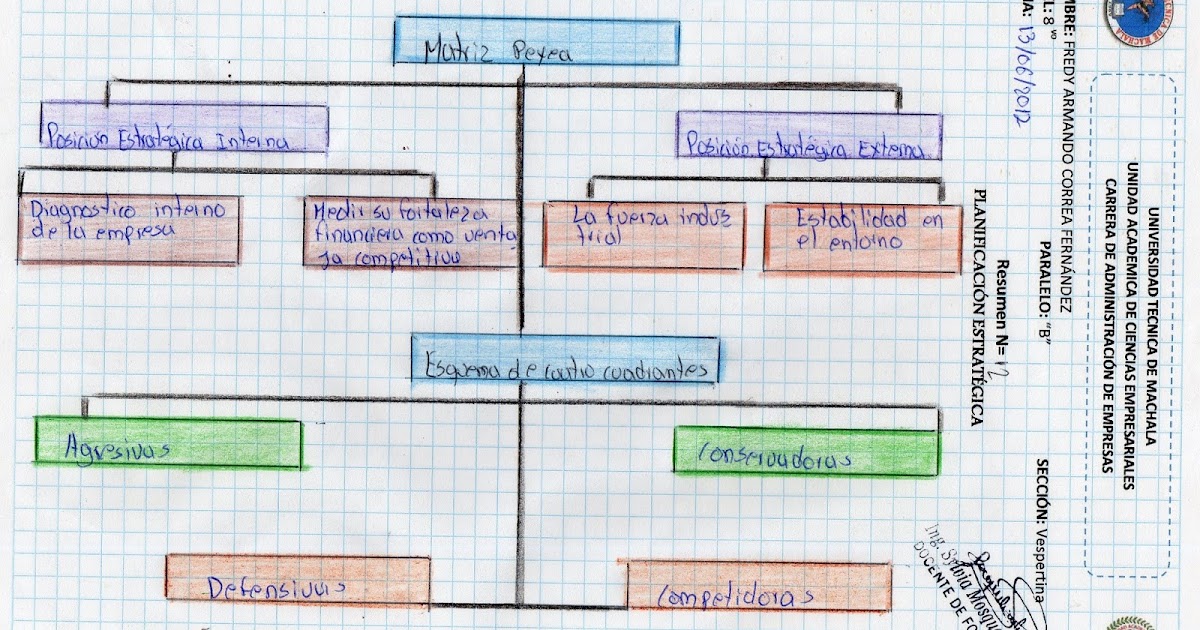 Matriz Peyea
Posición Estratégica Interna
Posición Estratégica Externa
Diagnostico interno
de la empresa
Medir su fortaleza
financiera como venta
ja competitiva
La fuerza indus
trial
Estabilidad en
el entorno
Esquema de cuatro cuadrantes
Agresivas
Conservadoras
Defensivas
Competidoras
UNIVERSIDAD TECNICA DE MACHALA
UNIDAD ACADEMICA DE CIENCIAS EMPRESARIALES
CARRERA DE ADMINISTRACIÓN DE EMPRESAS
MBRE: FREDY ARMANDO CORREA FERNÁNDEZ
L: 8 vs PARALELO: "B" SECCIÓN: Vespertina
HA: 13/06/2012
Resumen N= 12
PLANIFICACIÓN ESTRATÉGICA
Ing. Silvia Mosqu
DOCENTE DE FO
TECNICA DE MACHALA